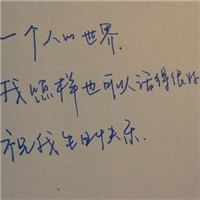 一个人的世界.
我照样也可以活得很好
祝我生日快乐.